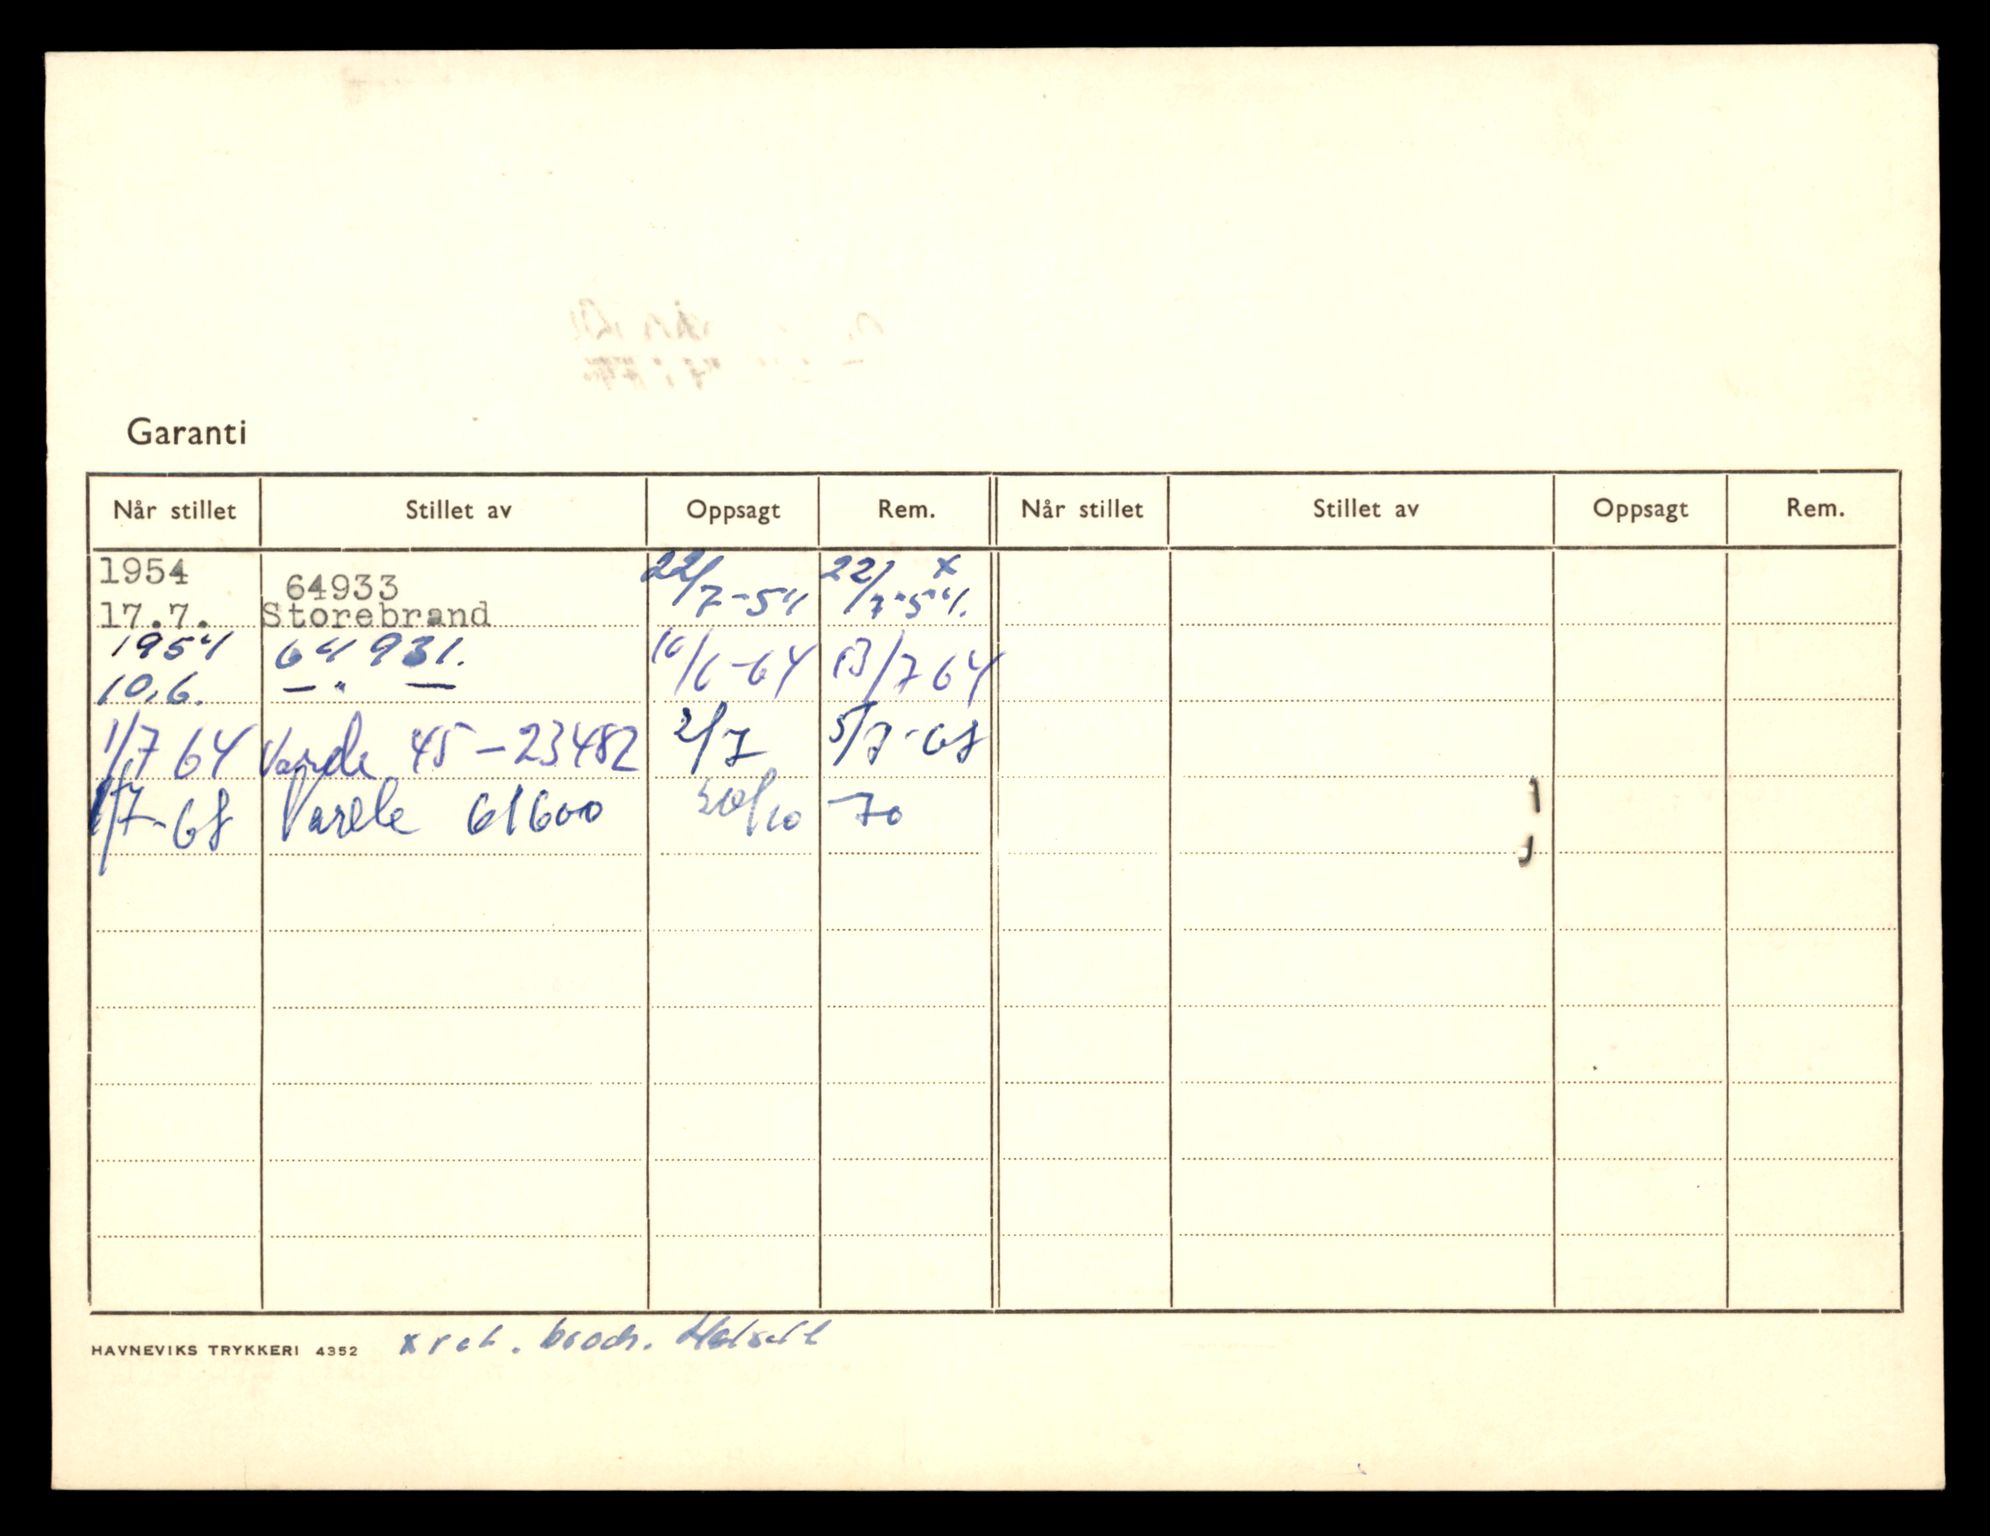 Garanti
Når stillet Stillet av Oppsagt Rem. Når stillet Stillet av Oppsagt Rem.
1954 64933 22/7-54 22/7-54. x
17.7. Storebrand
1954 64931. 16/6-64 13/7 64
10.6. — " —
1/7 64 Varde 45-23482 2/7 5/7-68
1/7-68 Varde 61600 30/10 -70
HAVNEVIKS TRYKKERI 4352 x ret.